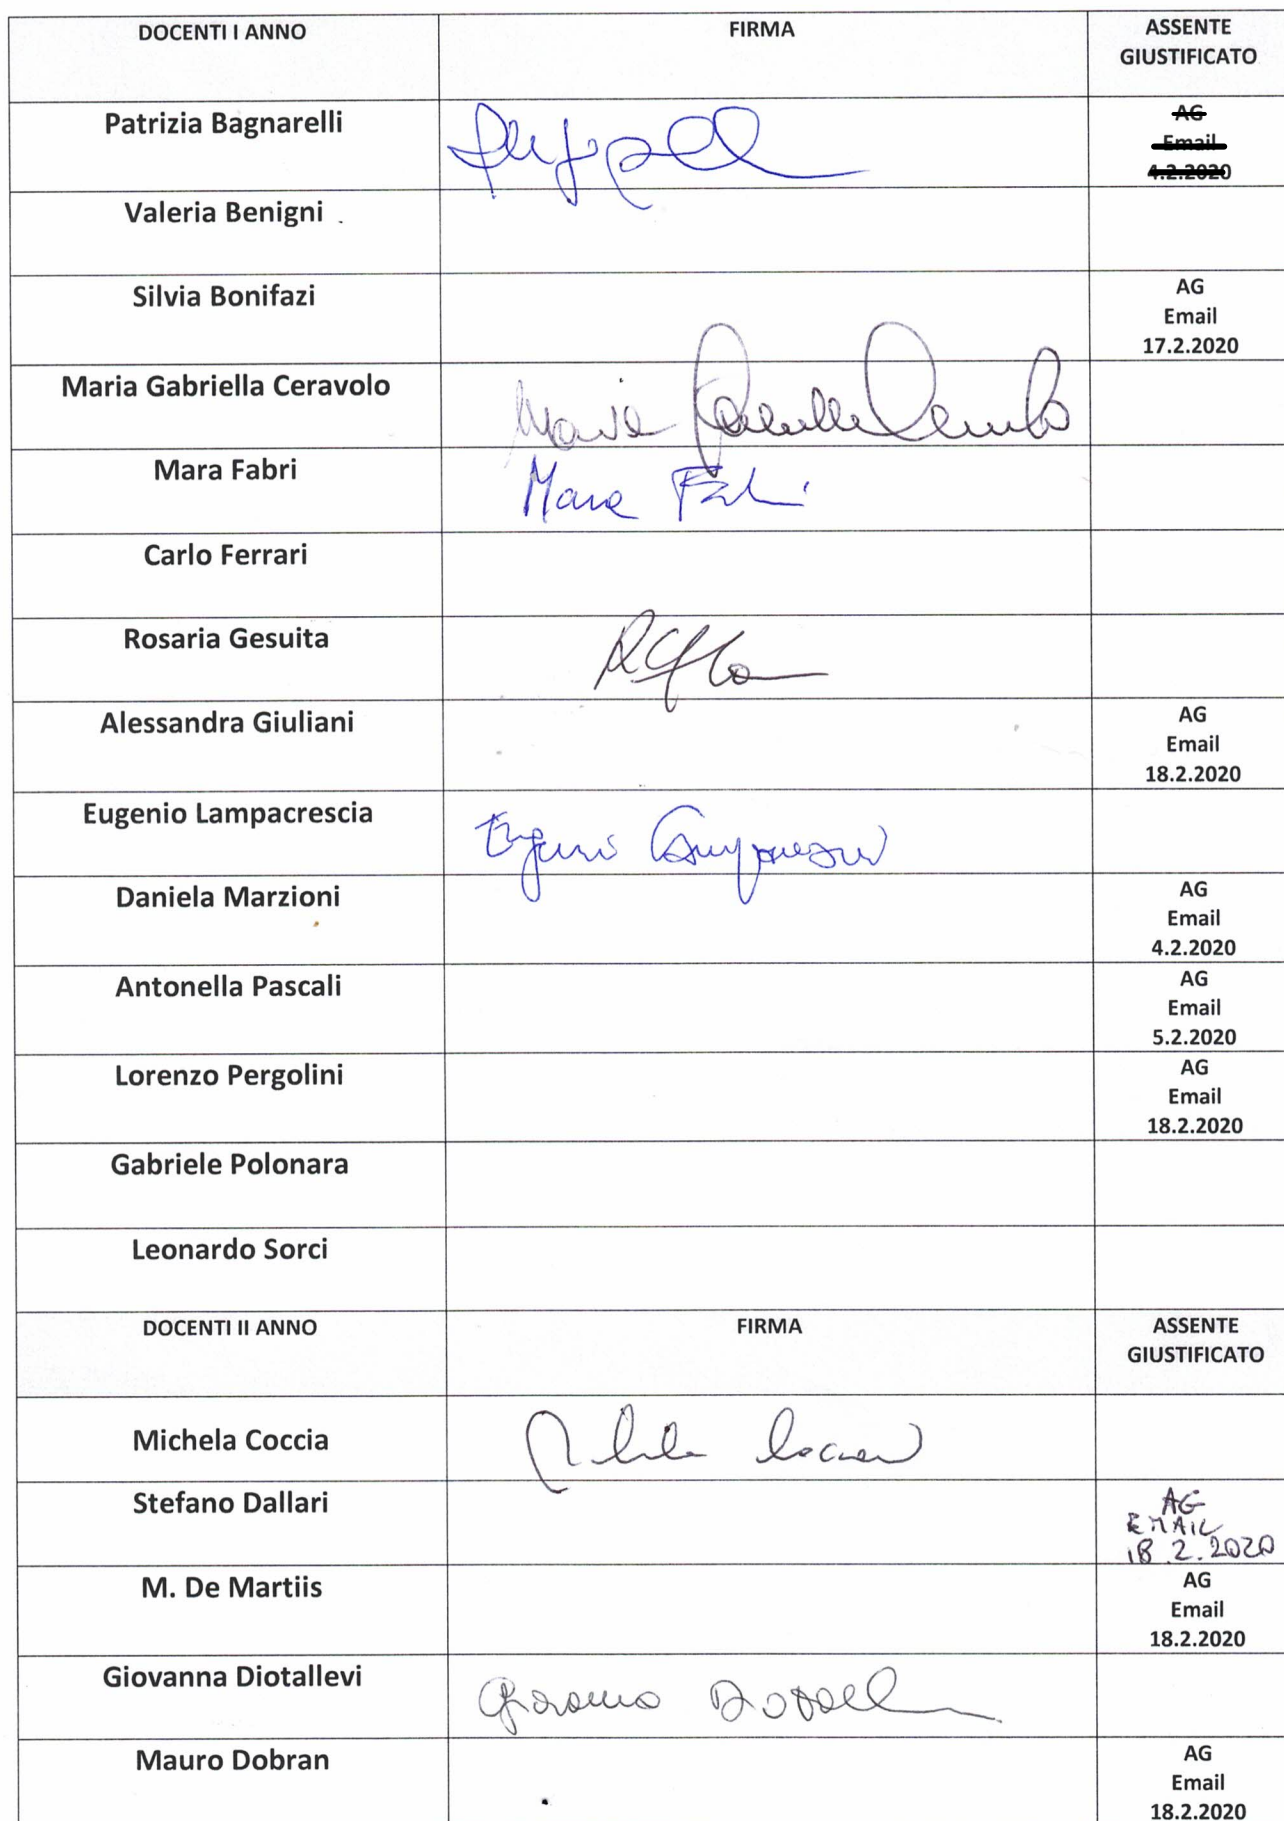 DOCENTI I ANNO FIRMA ASSENTE
GIUSTIFICATO
Patrizia Bagnarelli AG
Email
4.2.2020
Valeria Benigni
Silvia Bonifazi AG
Email
17.2.2020
Maria Gabriella Ceravolo Maria Gabriella Ceravolo
Mara Fabri Mara Fabri
Carlo Ferrari
Rosaria Gesuita
Alessandra Giuliani AG
Email
18.2.2020
Eugenio Lampacrescia Eugenio Lampacrescia
Daniela Marzioni AG
Email
4.2.2020
Antonella Pascali AG
Email
5.2.2020
Lorenzo Pergolini AG
Email
18.2.2020
Gabriele Polonara
Leonardo Sorci
DOCENTI II ANNO FIRMA ASSENTE
GIUSTIFICATO
Michela Coccia Michela Coccia
Stefano Dallari AG
EMAIL
18.2.2020
M. De Martiis AG
Email
18.2.2020
Giovanna Diotallevi Giovanna Diotallevi
Mauro Dobran AG
Email
18.2.2020